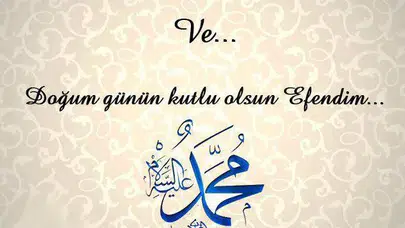 Ve...
Doğum günün kutlu olsun Efendim...
محمد عليه السلام